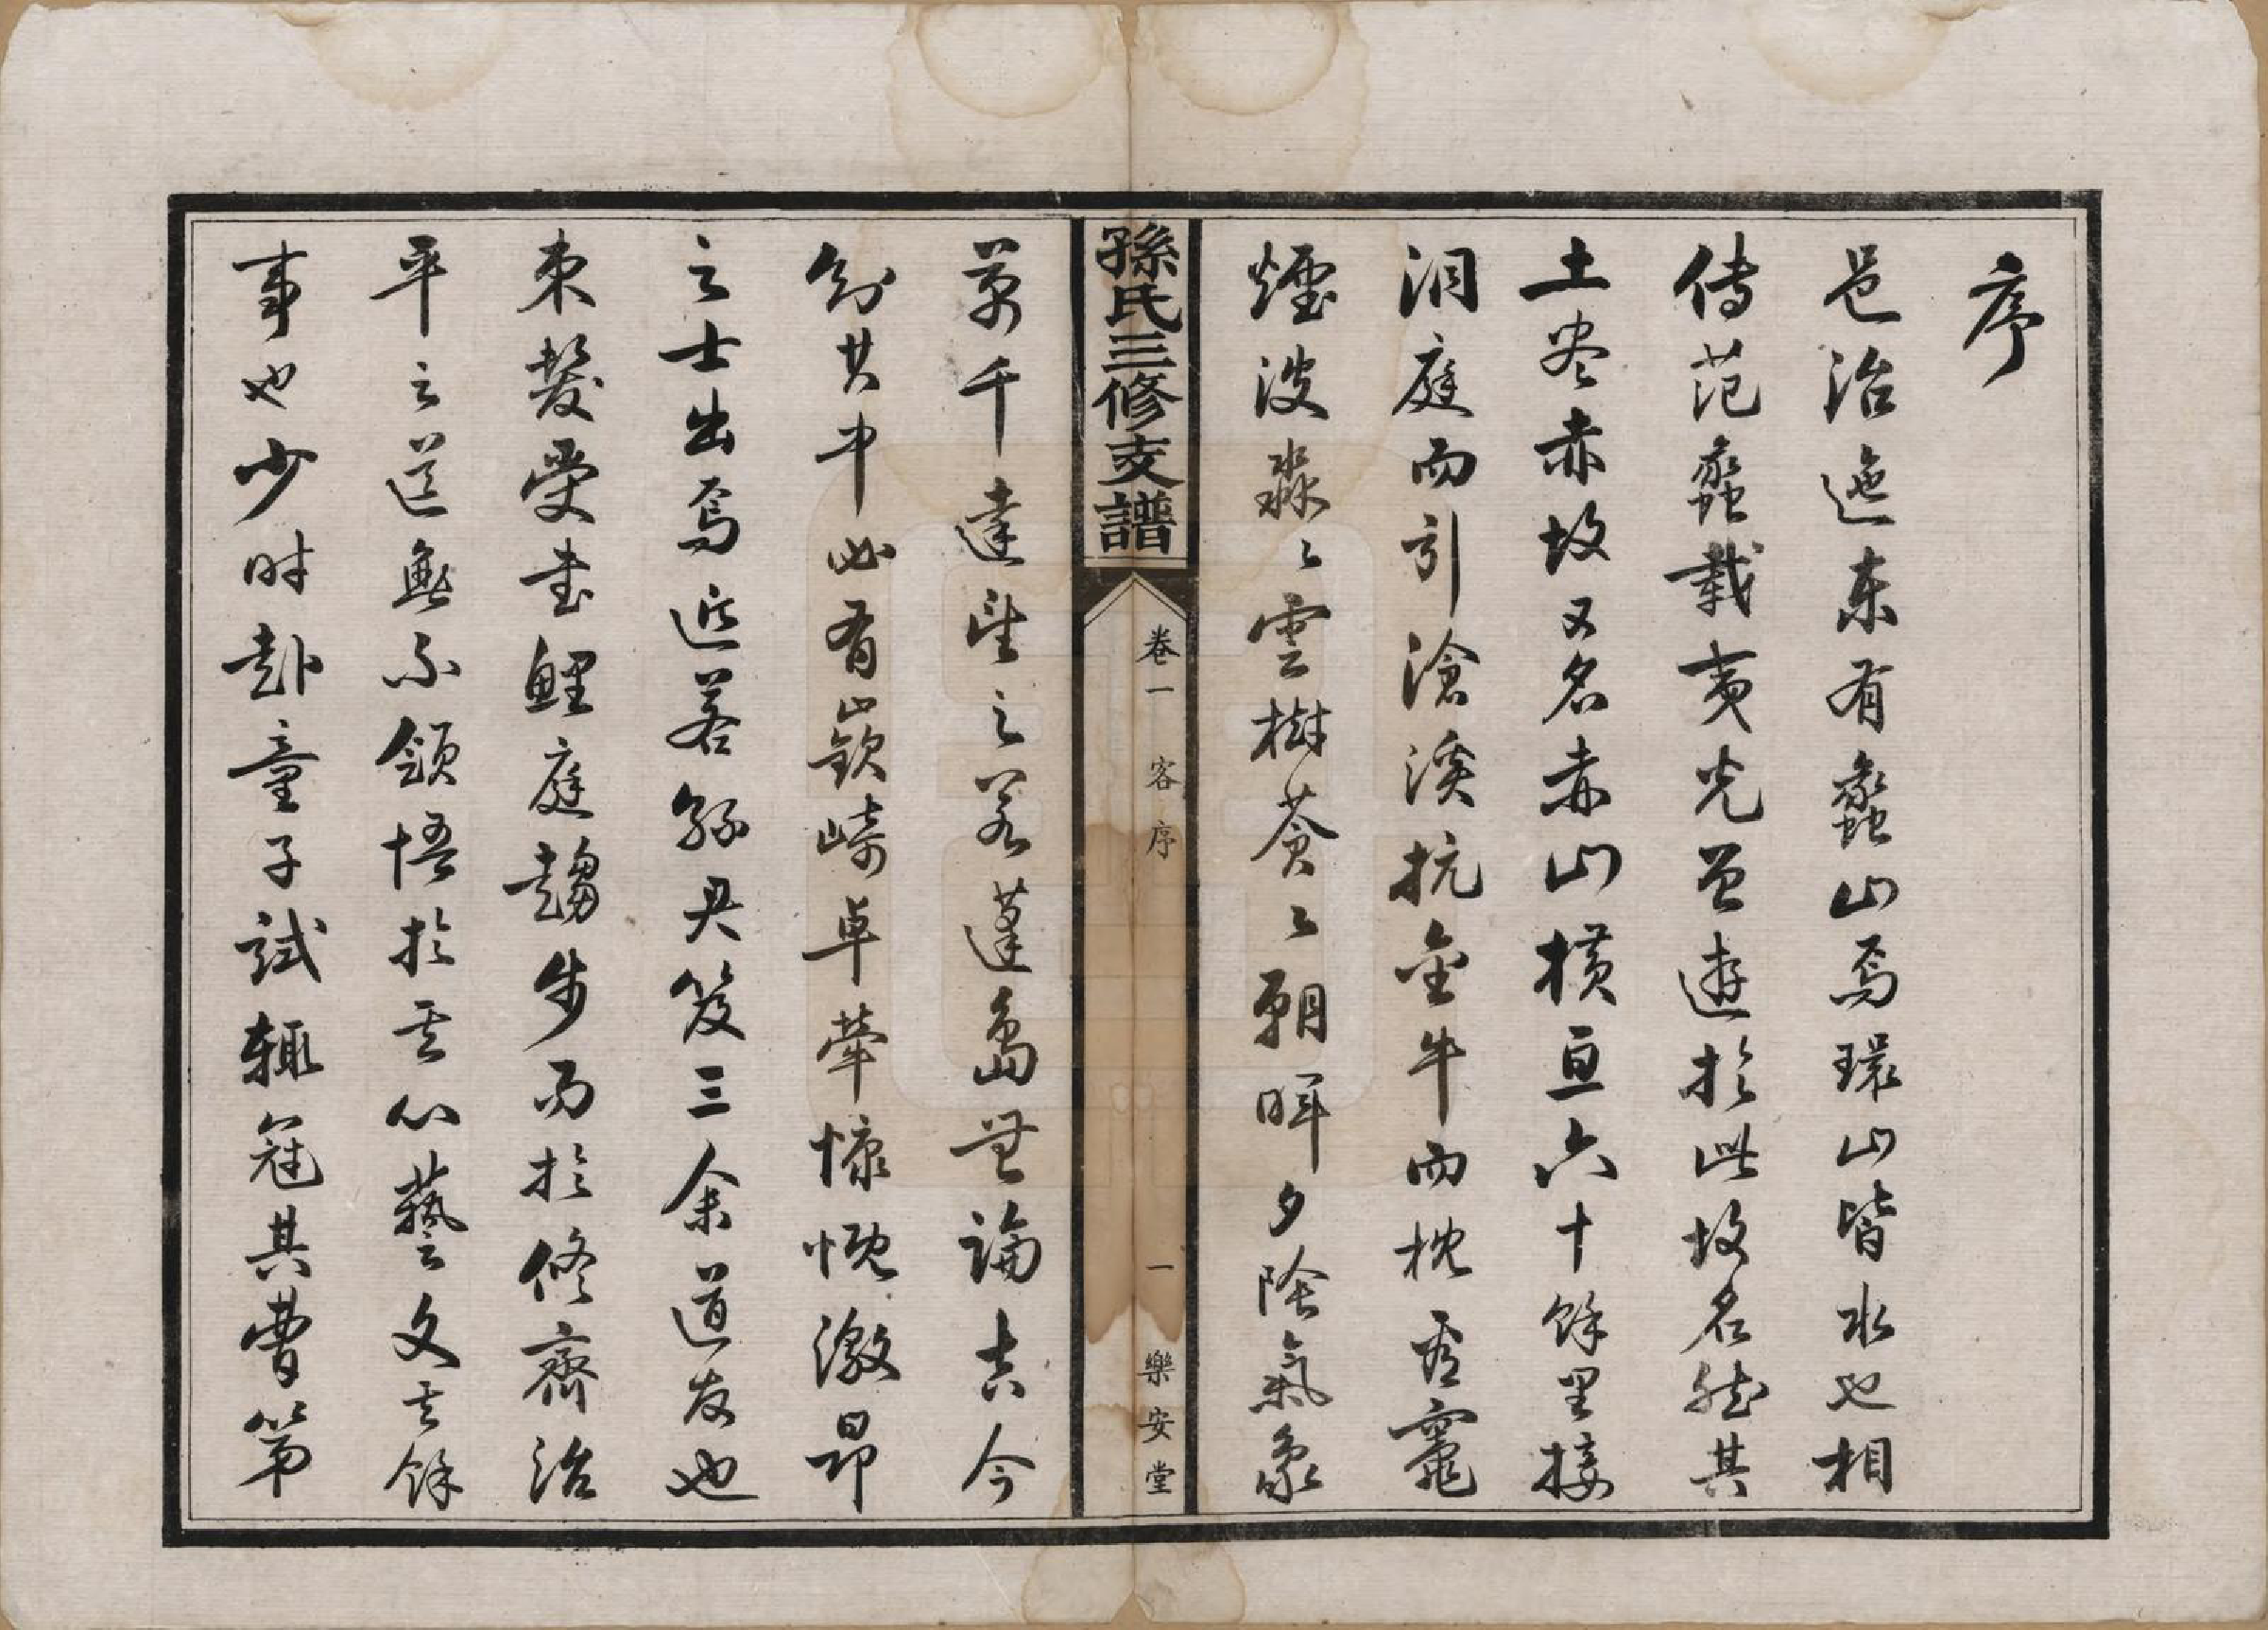 序
邑治迤东有蠡山焉環山皆水也相
傳范蠡載夷光曾遊於此故名然其
土盡赤故又名赤山横亘六十餘里接
洞庭而引滄溪抗金牛而枕君竈
煙波淼〻雲樹蒼〻朝暉夕陰氣象
孫氏三修支譜
卷一 客序 一 樂安堂
萬千達望之若蓬島無論古今
知其中必有嶔崎卓犖慷慨激昂
之士出焉近若孫君笈三余道友也
束髮受書鯉庭趨步而於修齊治
平之道無不領悟於其心藝文其餘
事也少时赴童子試輒冠其曹第